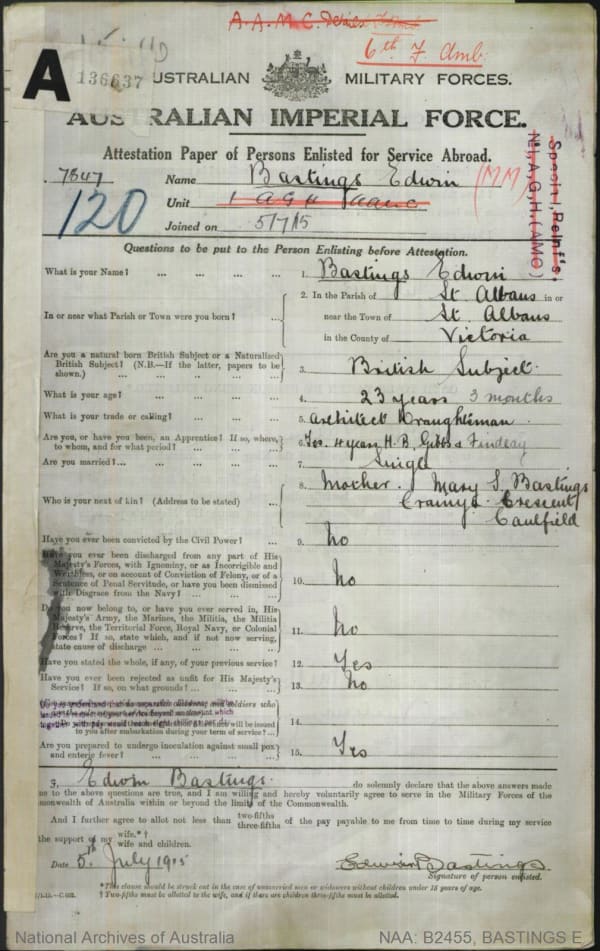 A.A.M.C.
6th F. Amb.
A
136637
AUSTRALIAN MILITARY FORCES.
AUSTRALIAN IMPERIAL FORCE.
Attestation Paper of Persons Enlisted for Service Abroad.
7847 Name Bastings Edwin (MM)
120 Unit 1 AGH AAMC
Joined on 5/7/15
Special Reinfts.
No 1, A.G.H. (AMC)
Questions to be put to the Person Enlisting before Attestation.
What is your Name? ... ... ... ... 1. Bastings Edwin
In or near what Parish or Town were you born? ... 2. In the Parish of St Albans in or
near the Town of St. Albans
in the County of Victoria
Are you a natural born British Subject or a Naturalized
British Subject? (N.B.—If the latter, papers to be
shown.) ... ... ... ... 3. British Subject.
What is your age? ... ... ... ... 4. 23 years 3 months
What is your trade or calling? ... ... ... 5. Architect Draughtsman.
Are you, or have you been, an Apprentice? If so, where,
to whom, and for what period? ... ... ... 6. Yes. 4 years, H. B. Gibbs & Findlay
Are you married?... ... ... ... 7. Single
Who is your next of kin? (Address to be stated) ... 8. Mother. Mary S. Bastings
Crescent
Caulfield
Have you ever been convicted by the Civil Power? ... 9. No
Have you ever been discharged from any part of His
Majesty's Forces, with Ignominy, or as Incorrigible and
Worthless, or on account of Conviction of Felony, or of a
Sentence of Penal Servitude, or have you been dismissed
with Disgrace from the Navy? ... ... ... 10. No
Do you now belong to, or have you ever served in, His
Majesty's Army, the Marines, the Militia, the Militia
Reserve, the Territorial Force, Royal Navy, or Colonial
Forces? If so, state which, and if not now serving,
state cause of discharge ... ... ... 11. No
Have you stated the whole, if any, of your previous service? 12. Yes
Have you ever been rejected as unfit for His Majesty's
Service? If so, on what grounds? ... ... 13. No
to you after embarkation during your term of service? ... 14.
Are you prepared to undergo inoculation against small pox
and enteric fever? ... ... ... ... 15. Yes
I, Edwin Bastings. do solemnly declare that the above answers made
me to the above questions are true, and I am willing and hereby voluntarily agree to serve in the Military Forces of the
monwealth of Australia within or beyond the limits of the Commonwealth.
And I further agree to allot not less than two-fifths
three-fifths of the pay payable to me from time to time during my service
the support of my wife.*†
wife and children.
Date 5th July 1915 Edwin Bastings.
Signature of person enlisted.
*This clause should be struck out in the case of unmarried men or widowers without children under 18 years of age.
† Two-fifths must be allotted to the wife, and if there are children three-fifths must be allotted.
National Archives of Australia NAA: B2455, BASTINGS E